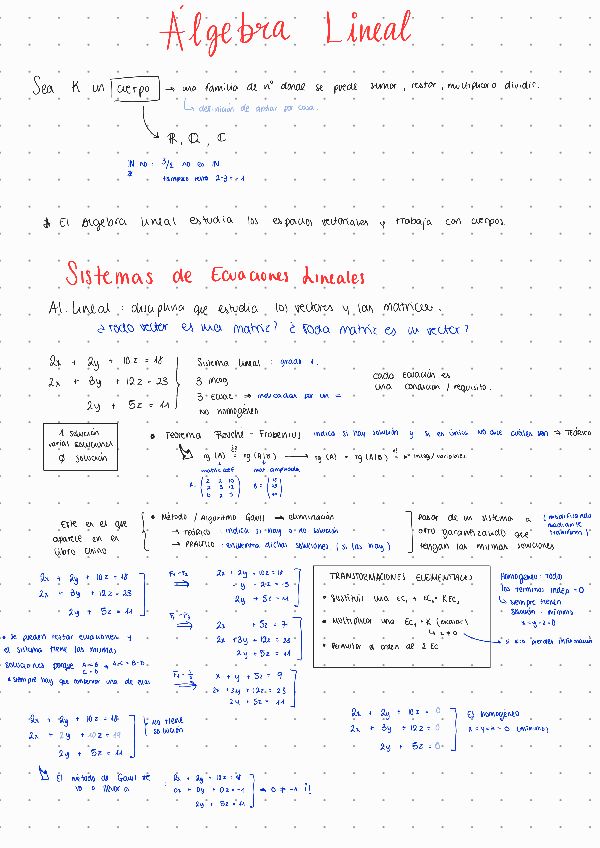 Álgebra Lineal
Sea K un cuerpo → una familia de nº donde se puede sumar, restar, multiplicar o dividir.
↳ definición de andar por casa.
ℝ, ℚ, ℂ
ℕ no: 3/2 no es ℕ
tampoco resto 2-3=-1
* El Álgebra lineal estudia los espacios vectoriales y trabaja con cuerpos.
Sistemas de Ecuaciones Lineales
Al. Lineal: disciplina que estudia los vectores y las matrices.
¿Todo vector es una matriz? ¿Toda matriz es un vector?
2x + 2y + 10z = 18
2x + 3y + 12z = 23
2y + 5z = 11
Sistema lineal: grado 1.
3 incog
3 ecuac → indicadas por un =
no homogéneo
cada ecuación es
una condición / requisito.
1 solución
varias soluciones
∅ solución
• Teorema Rouché - Frobenius indica si hay solución y si es única no que cuáles son → TEÓRICO
rg (A) = rg (A|B) → rg (A) = rg (A|B) = nº incog/variables
matriz coef mat ampliada
Este es el que
aparece en el
libro chino
• Método / Algoritmo Gauss → eliminación
→ TEÓRICO: indica si hay o no solución
→ PRÁCTICO: encuentra dichas soluciones (si las hay)
Pasar de un sistema a
otro garantizando que
tengan las mismas soluciones
(modificando
mediante
transform)
2x + 2y + 10z = 18
2x + 3y + 12z = 23
2y + 5z = 11
2x + 2y + 10z = 18
-y - 2z = -5
2y + 5z = 11
2x + 5z = 7
2x + 3y + 12z = 23
2y + 5z = 11
x + y + 5z = 9
2x + 3y + 12z = 23
2y + 5z = 11
• se pueden restar ecuaciones y
el sistema tiene las mismas
soluciones porque
* siempre hay que conservar una de ellas
TRANSFORMACIONES ELEMENTALES
• Sustituir una
• Multiplicar una EC₁ · K (escalar)
↳ k ≠ 0
• Permutar el orden de 2 EC
Homogéneo: todo
los términos indep = 0
↳ siempre tienen
solución: mínimo
x=y=z=0
si k=0 pierdes información
2x + 2y + 10z = 18
2x + 2y + 10z = 19
2y + 5z = 11
no tiene
solución
2x + 2y + 10z = 0
2x + 3y + 12z = 0
2y + 5z = 0
Es homogéneo
x=y=z=0 (mínimo)
El método de Gauss te
va a llevar a
2x + 2y + 10z = 18
0x + 0y + 0z = -1
2y + 5z = 11
→ 0 ≠ -1 ¡!